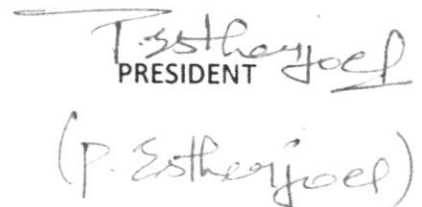 P. Estherjoel
PRESIDENT
(P. Estherjoel)